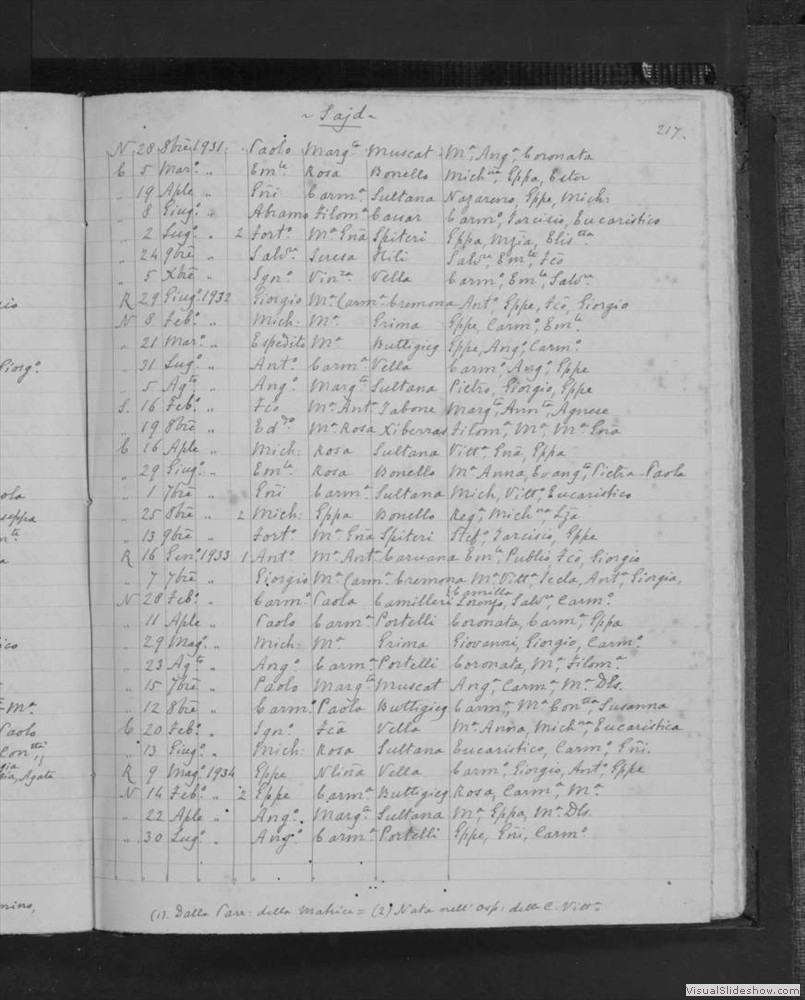 ~ Sajd ~
217.
N. 28 8bre 1931. Paolo Marg.ta Muscat Ma, Anga, Coronata
C 5 Marº " Em.le Rosa Bonello Mich.na, Eppa, Ester
" 19 Aple " Gñi Carm.a Sultana Nazareno, Eppe, Mich:
" 8 Giugº " Abramo Filom.a Cauar Carmº, Tarcisio, Eucaristico
" 2 Lugº " 2 Fortº Ma Gña Spiteri Eppa, Elis.tta
" 24 9bre " Salv.re Teresa Hili Salv.re, Em.le, Fcõ
" 5 Xbre " Ignº Vin.za Vella Carmº, Em.le, Salv.re
R 29 Giugº 1932 Giorgio Ma Carm.a Cremona Antº, Eppe, Fcõ, Giorgio
N 8 Febº " Mich: Ma Grima Eppe, Carmº, Em.le
" 21 Marº " Espedito Ma Buttigieg Eppe, Angº, Carmº
" 31 Lugº " Antº Carm.a Vella Carmº, Angº, Eppe
" 5 Ag.to " Angº Marg.ta Sultana Pietro, Giorgio, Eppe
S. 16 Febº " Fcõ Ma Ant.a Tabone Marg.ta, Agnese
" 19 8bre " Ed.do Ma Rosa Xiberras Filom.a, Ma, Ma Gña
C 16 Aple " Mich: Rosa Sultana Vitt.a, Gña, Eppa
" 29 Giugº " Em.le Rosa Bonello Ma Anna, Evang.ta, Pietra-Paola
" 1 7bre " Gñi Carm.a Sultana Mich, Vitt.º, Eucaristico
" 25 8bre " 2 Mich: Eppa Bonello Reg.a, Mich.na, Lza
" 13 9bre " Fortº Ma Gña Spiteri Stefº, Tarcisio, Eppe
R 16 Genº 1933 1 Antº Ma Ant.a Caruana Em.le, Publio, Fcõ, Giorgio
" 7 7bre " Giorgio Ma Carm.a Cremona Ma Vitt.a, Tecla, Ant.a, Giorgia,
N 28 Febº " Carmº Paola Camilleri Camillo Lorenzo, Salv.re, Carmº
" 11 Aple " Paolo Carm.a Portelli Coronata, Carm.a, Eppa
" 29 Magº " Mich: Ma Grima Giovanni, Giorgio, Carmº
" 23 Ag.to " Angº Carm.a Portelli Coronata, Ma, Filom.a
" 15 7bre " Paolo Marg.ta Muscat Ang.a, Carm.a, Ma Dls.
" 12 8bre " Carmº Paola Buttigieg Carm.a, Ma Con.tta, Susanna
C 20 Febº " Ignº Fcã Vella Ma Anna, Mich.na, Eucaristica
" 13 Giugº " Mich: Rosa Sultana Eucaristico, Carmº, Gñi.
R 9 Magº 1934 Eppe Vella Carmº, Giorgio, Antº, Eppe
N 14 Febº " 2 Eppe Carm.a Buttigieg Rosa, Carm.a, Ma
" 22 Aple " Angº Marg.ta Sultana Ma, Eppa, Ma Dls.
" 30 Lugº " Angº Carm.a Portelli Eppe, Gñi, Carmº
(1). Dalla Parr: della Matrice = (2) Nata nell' Osp: della C. Vitt.a
VisualSlideshow.com